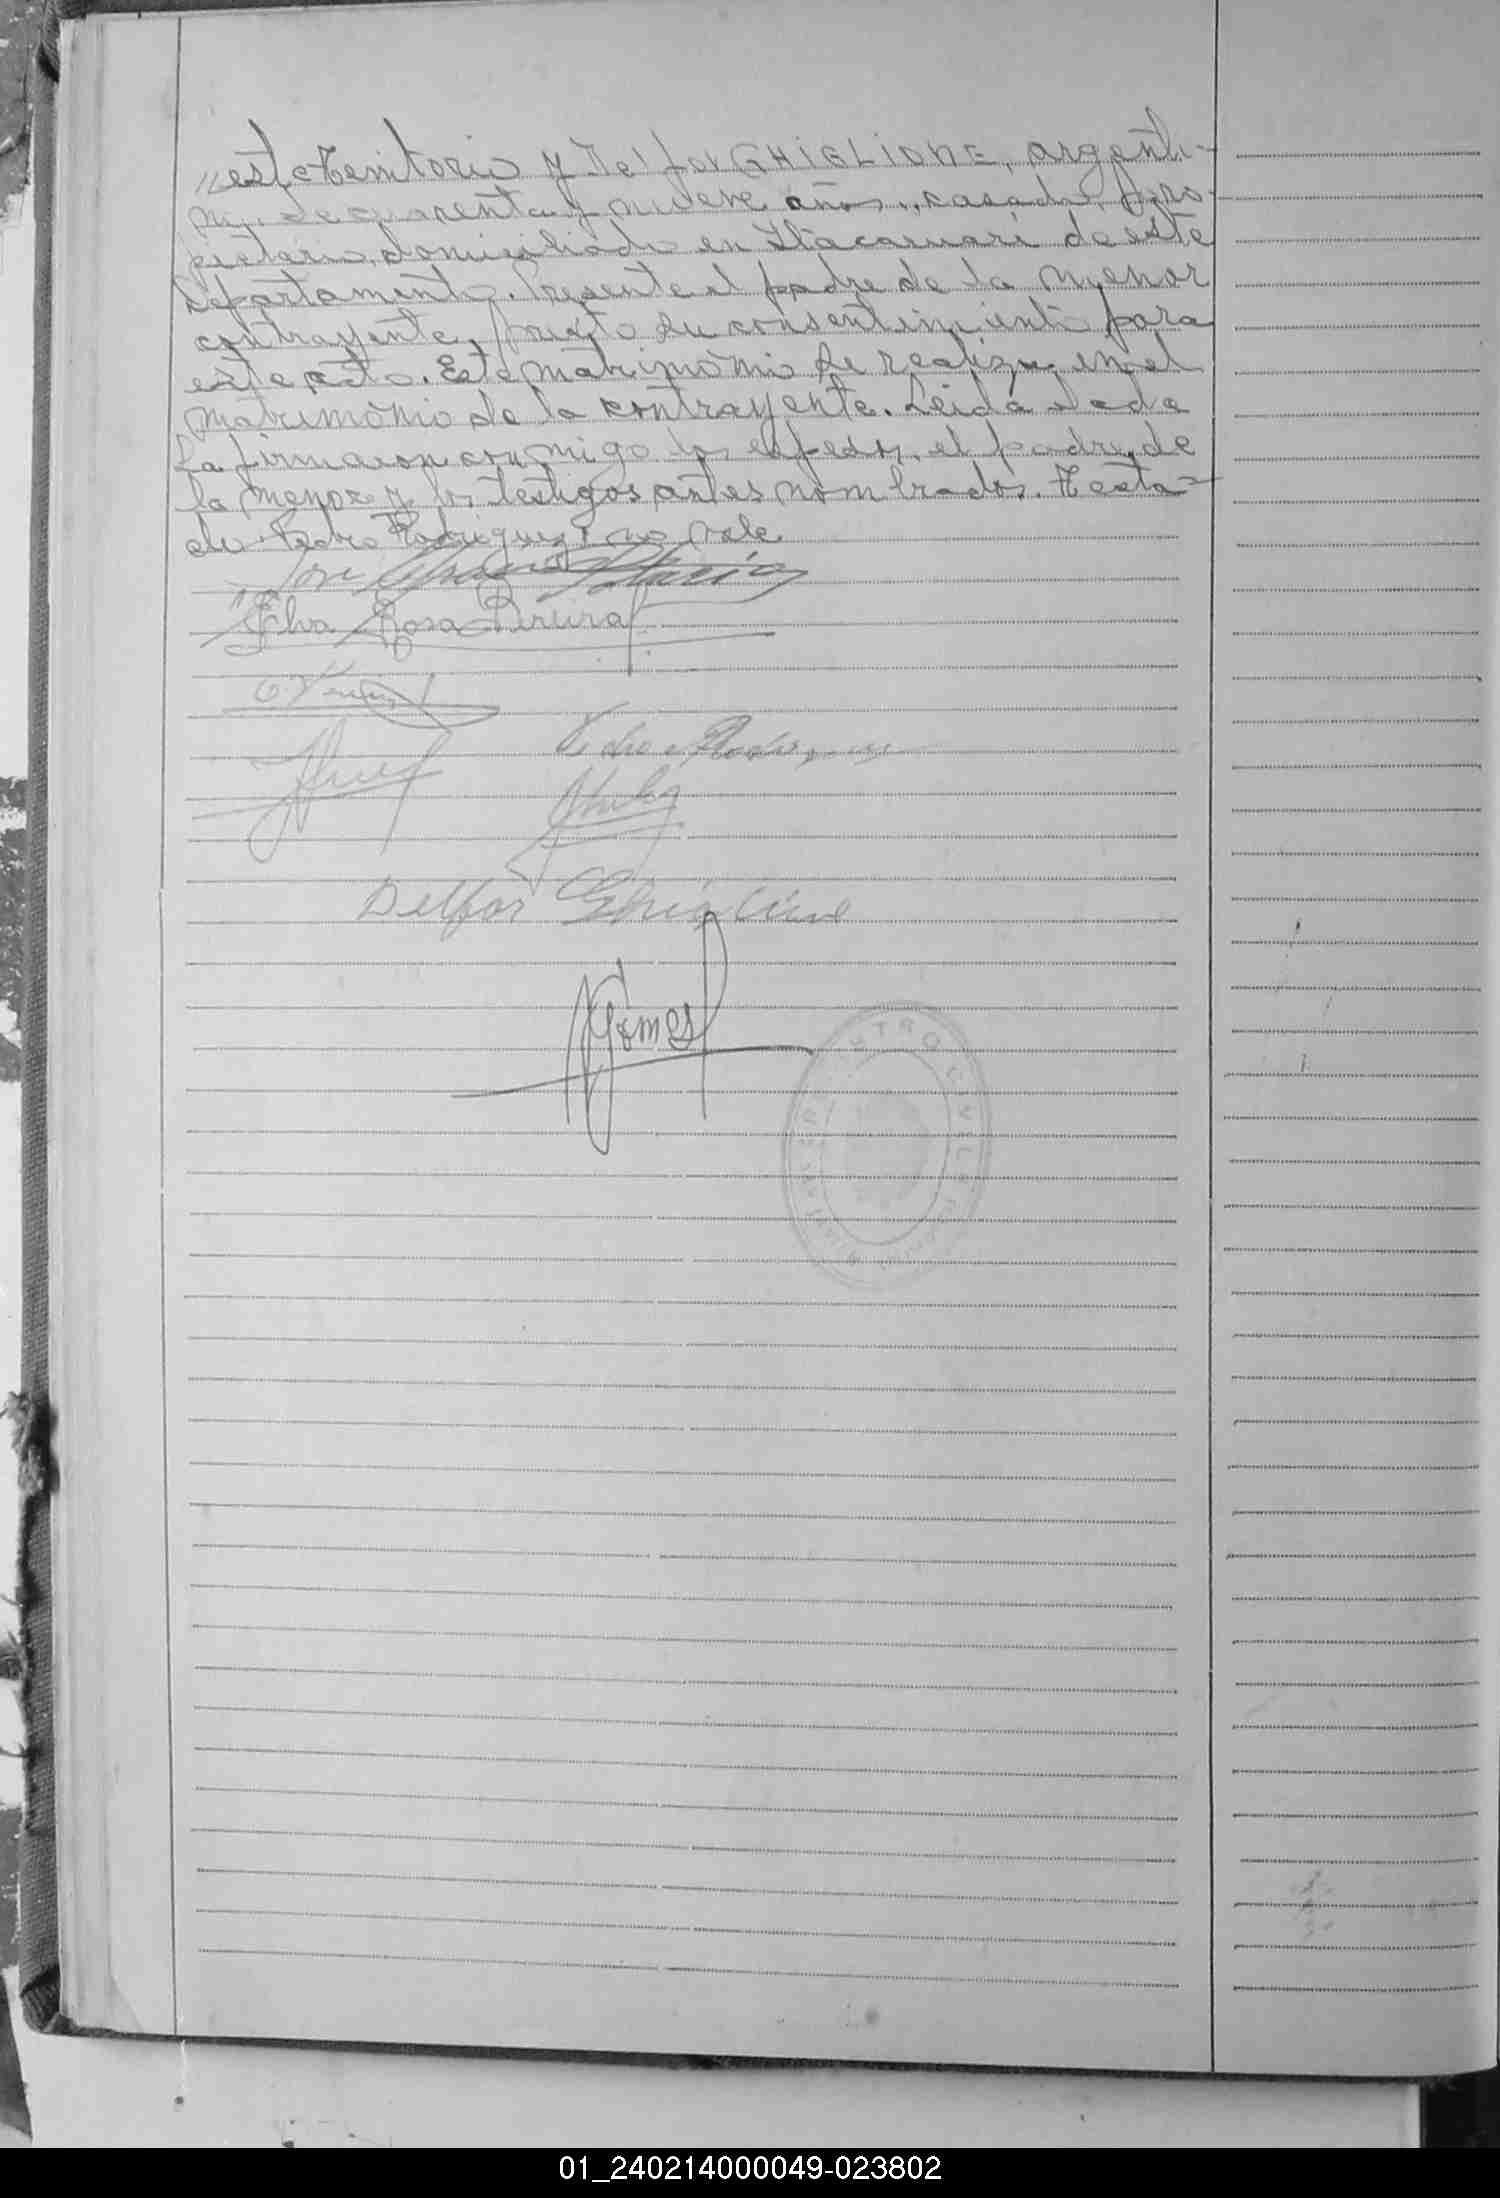 //este territorio y Delfor GHIGLIONE, argenti-
no, de cuarenta y nueve años, casado, pro-
pietario, domiciliado en Itacaruaré de este
departamento. Presente el padre de la menor
contrayente, presto su consentimiento para
este acto. Este matrimonio se realiza en el
matrimonio de la contrayente. Leida el acta
la firmaron conmigo los esposos, el padre de
la menor y los testigos antes nombrados. Testa-
do: Pedro Rodriguez: no vale
José
Elva Rosa Pereira
Pedro Rodriguez
Delfor Ghiglione
Gomes
REGISTRO CIVIL
01_240214000049-023802